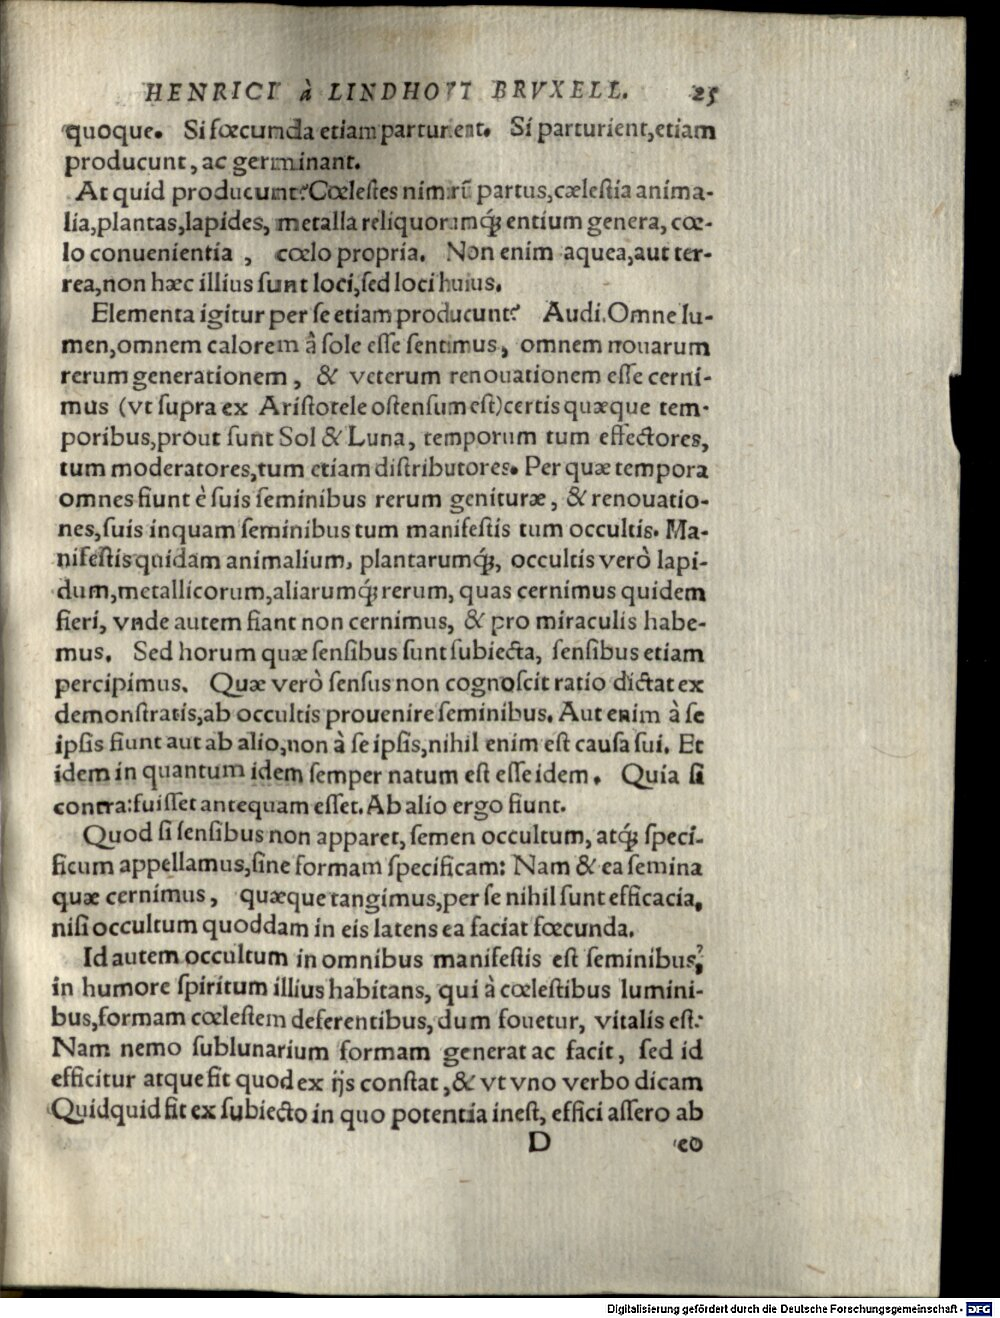 HENRICI à LINDHOVT BRVXELL. 25
quoque. Si fœcunda etiam parturient. Si parturient, etiam
producunt, ac germinant.
At quid producunt? Cœlestes nimirũ partus, cælestia anima-
lia, plantas, lapides, metalla reliquorumq́; entium genera, cœ-
lo conuenientia, cœlo propria. Non enim aquea, aut ter-
rea, non hæc illius sunt loci, sed loci huius.
Elementa igitur per se etiam producunt? Audi. Omne lu-
men, omnem calorem â sole esse sentimus, omnem nouarum
rerum generationem, & veterum renouationem esse cerni-
mus (vt supra ex Aristotele ostensum est) certis quæque tem-
poribus, prout sunt Sol & Luna, temporum tum effectores,
tum moderatores, tum etiam distributores. Per quæ tempora
omnes fiunt è suis seminibus rerum genituræ, & renouatio-
nes, suis inquam seminibus tum manifestis tum occultis. Ma-
nifestis quidam animalium, plantarumq́;, occultis verò lapi-
dum, metallicorum, aliarumq́; rerum, quas cernimus quidem
fieri, vnde autem fiant non cernimus, & pro miraculis habe-
mus. Sed horum quæ sensibus sunt subiecta, sensibus etiam
percipimus. Quæ verò sensus non cognoscit ratio dictat ex
demonstratis, ab occultis prouenire seminibus. Aut enim à se
ipsis fiunt aut ab alio, non à se ipsis, nihil enim est causa sui. Et
idem in quantum idem semper natum est esse idem. Quia si
contra: fuisset antequam esset. Ab alio ergo fiunt.
Quod si sensibus non apparet, semen occultum, atq́; speci-
ficum appellamus, sine formam specificam: Nam & ea semina
quæ cernimus, quæque tangimus, per se nihil sunt efficacia,
nisi occultum quoddam in eis latens ea faciat fœcunda.
Id autem occultum in omnibus manifestis est seminibus?
in humore spiritum illius habitans, qui à cœlestibus lumini-
bus, formam cœlestem deferentibus, dum fouetur, vitalis est:
Nam nemo sublunarium formam generat ac facit, sed id
efficitur atque fit quod ex ijs constat, & vt vno verbo dicam
Quidquid fit ex subiecto in quo potentia inest, effici assero ab
D eo
Digitalisierung gefördert durch die Deutsche Forschungsgemeinschaft - DFG